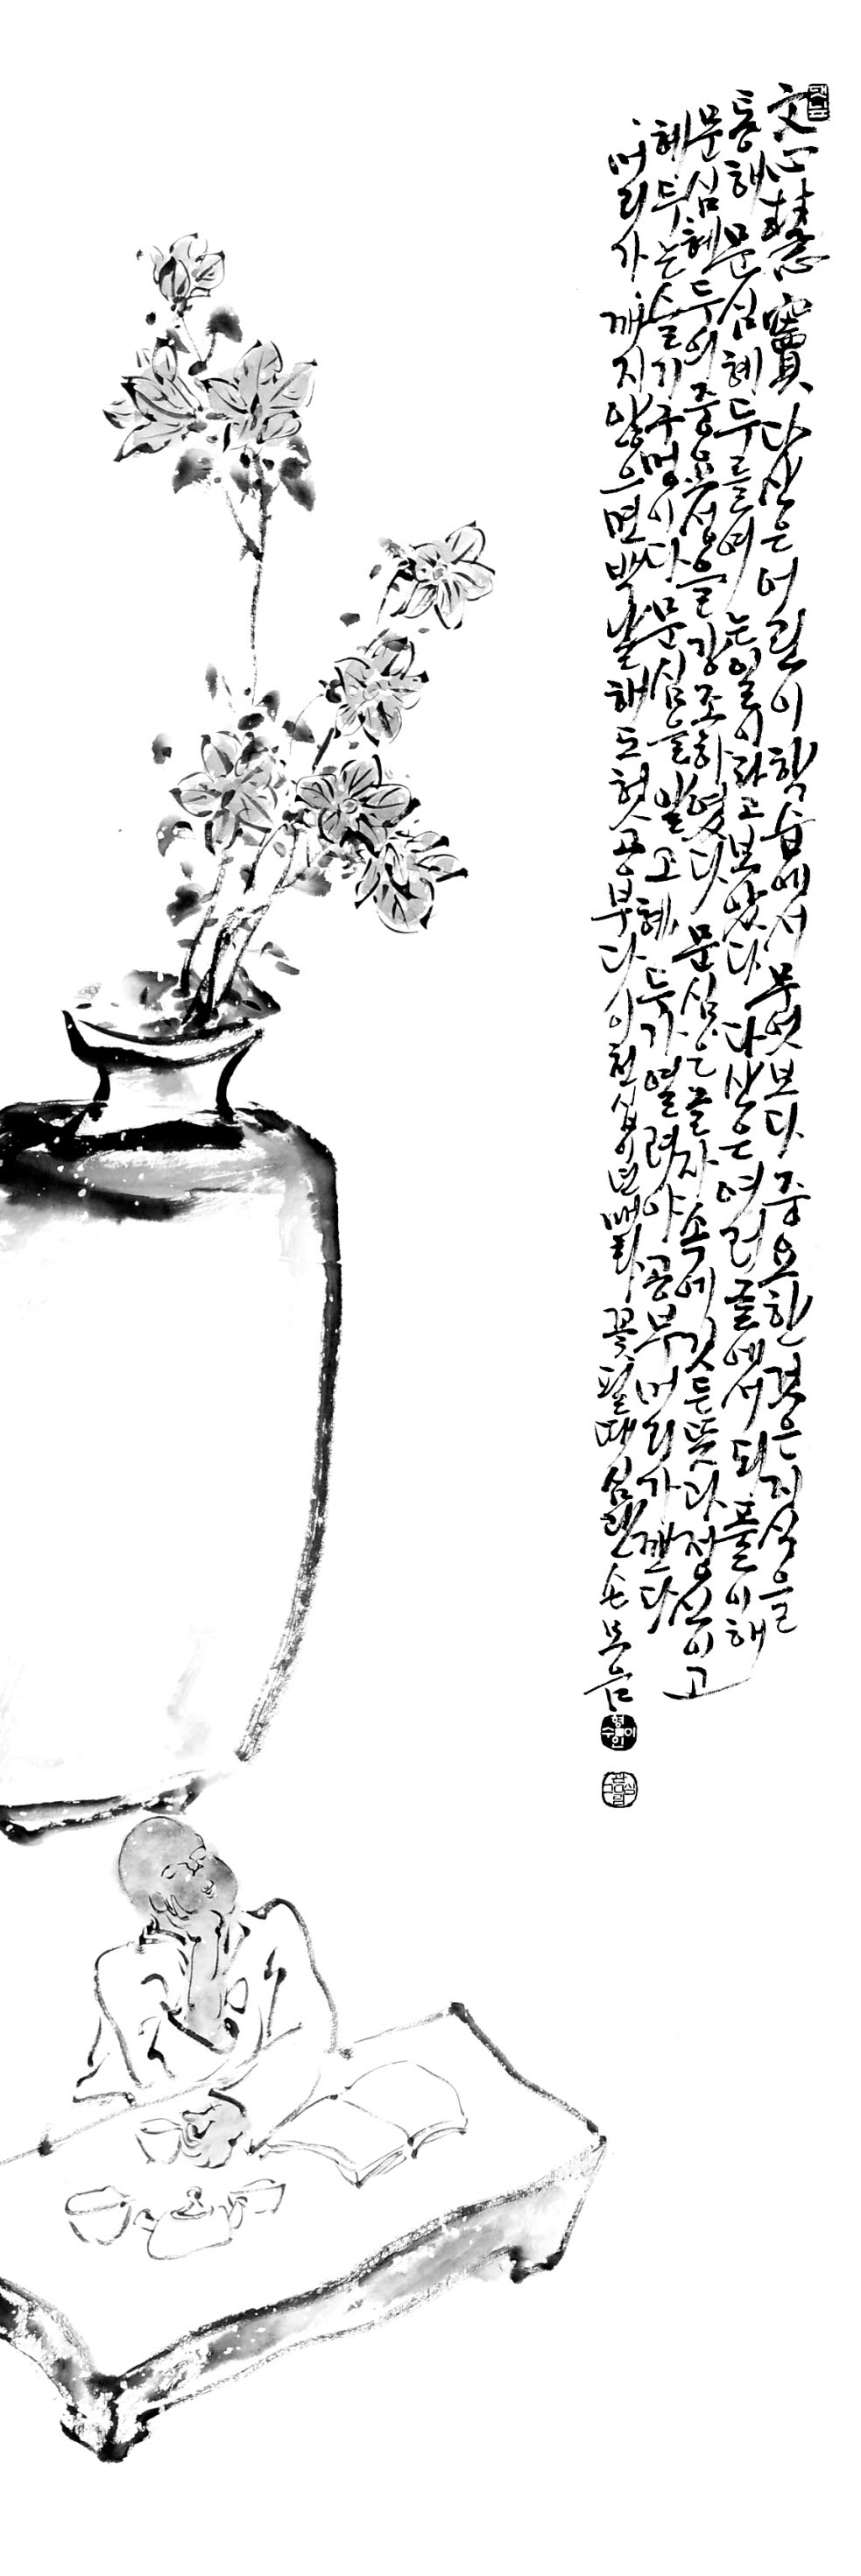 文心慧竇 다산은 어린이 학습에서 무엇보다 중요한 것은 지식을
통해 문심 혜두를 여는 일이라고 보았다 다산은 여러 글에서 되풀이해
문심 혜두의 중요성을 강조하였다 문심은 글자 속에 깃든 뜻과 정신이고
혜두는 슬기구멍이다 문심을 알고 혜두가 열려야 공부머리가 깬다
머리가 깨지 않으면 백날 해도 헛공부다 이천십이년 매화꽃 필 때 심관